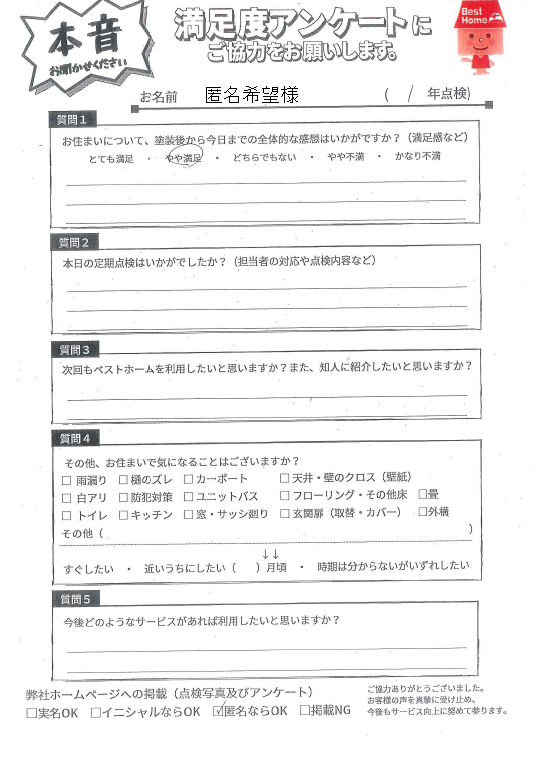 本音
お聞かせください
満足度アンケートに
ご協力をお願いします。
Best Home
お名前 匿名希望様 ( / 年点検)
質問1
お住まいについて、塗装後から今日までの全体的な感想はいかがですか?(満足感など)
とても満足 ・ やや満足 ・ どちらでもない ・ やや不満 ・ かなり不満
質問2
本日の定期点検はいかがでしたか?(担当者の対応や点検内容など)
質問3
次回もベストホームを利用したいと思いますか?また、知人に紹介したいと思いますか?
質問4
その他、お住まいで気になることはございますか?
□ 雨漏り □ 樋のズレ □ カーポート □ 天井・壁のクロス(壁紙)
□ 白アリ □ 防犯対策 □ ユニットバス □ フローリング・その他床 □畳
□ トイレ □ キッチン □ 窓・サッシ廻り □ 玄関扉(取替・カバー) □外構
その他( )
↓↓
すぐしたい ・ 近いうちにしたい( )月頃 ・ 時期は分からないがいずれしたい
質問5
今後どのようなサービスがあれば利用したいと思いますか?
弊社ホームページへの掲載(点検写真及びアンケート)
□実名OK □イニシャルならOK ☑匿名ならOK □掲載NG
ご協力ありがとうございました。
お客様の声を真摯に受け止め、
今後もサービス向上に努めて参ります。